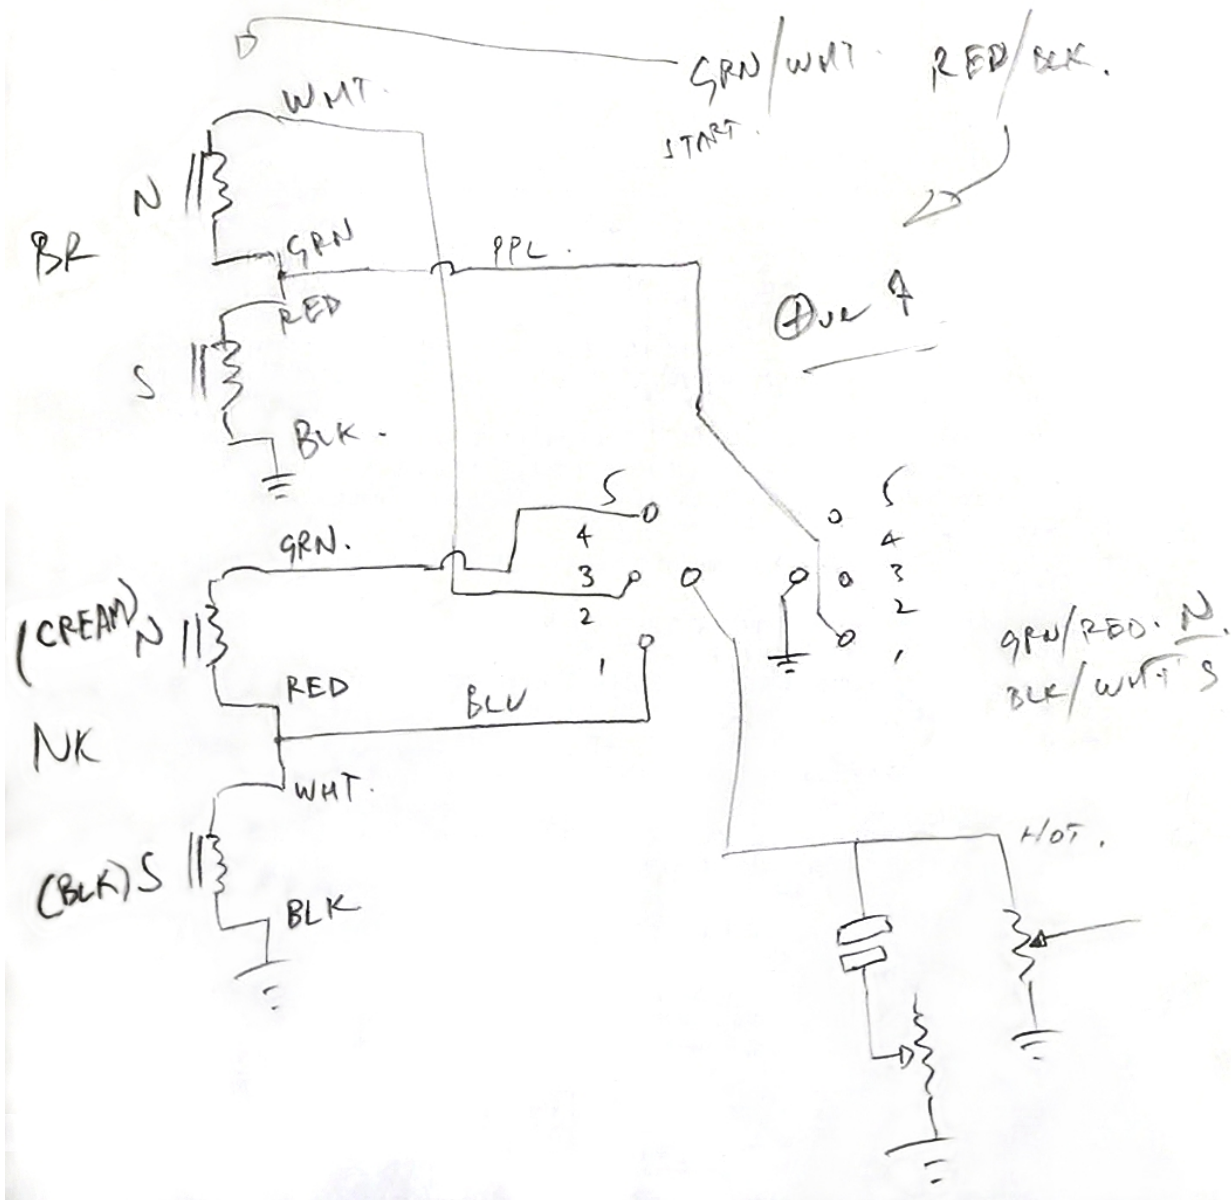 GRN/WHT. RED/BLK.
START.
WHT.
N
BR
GRN
PPL.
RED
S
BLK.
5
4
3
2
1
5
4
3
2
1
GRN.
(CREAM) N
RED
BLU
NK
WHT.
(BLK) S
BLK
GRN/RED. N.
BLK/WHT S
HOT.